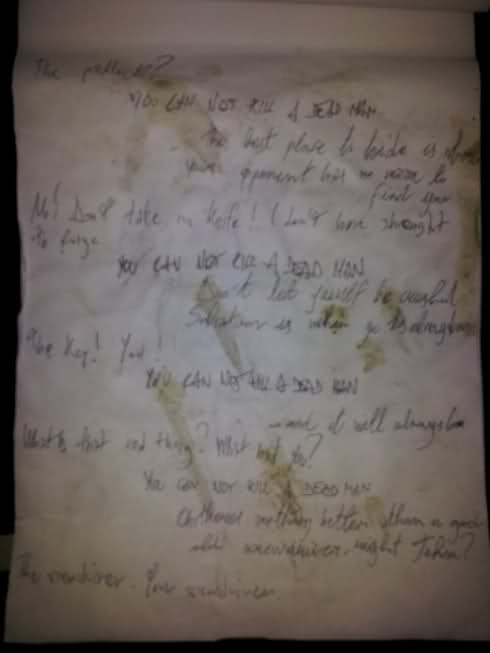 The
YOU CAN NOT KILL A DEAD MAN
The best place to hide is where
your opponent has no reason to
find you
No! Don't take my knife! I don't have strenght
to forge
YOU CAN NOT KILL A DEAD MAN
Don't let yourself be
is when
The Key! You!
YOU CAN NOT KILL A DEAD MAN
and it will always be
What is that red thing? What but you?
YOU CAN NOT KILL A DEAD MAN
nothing better than a good
old screwdriver, right John?
The screwdriver. Your screwdriver.